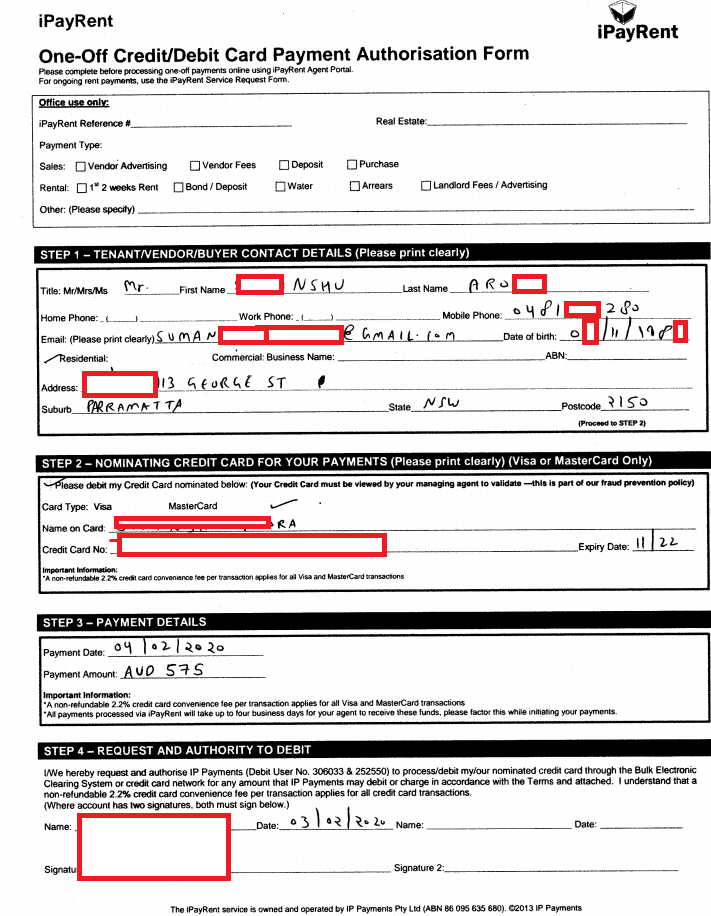 iPayRent
iPayRent
One-Off Credit/Debit Card Payment Authorisation Form
Please complete before processing one-off payments online using iPayRent Agent Portal.
For ongoing rent payments, use the iPayRent Service Request Form.
Office use only:
iPayRent Reference # Real Estate:
Payment Type:
Sales: Vendor Advertising Vendor Fees Deposit Purchase
Rental: 1st 2 weeks Rent Bond / Deposit Water Arrears Landlord Fees / Advertising
Other: (Please specify)
STEP 1 – TENANT/VENDOR/BUYER CONTACT DETAILS (Please print clearly)
Title: Mr/Mrs/Ms Mr. First Name NSHU Last Name ARO
Home Phone: ( ) Work Phone: ( ) Mobile Phone: 0481 280
Email: (Please print clearly) SUMAN @GMAIL.COM Date of birth: 0 /11/198
Residential: Commercial: Business Name: ABN:
Address: 113 GEORGE ST
Suburb PARRAMATTA State NSW Postcode 2150
(Proceed to STEP 2)
STEP 2 – NOMINATING CREDIT CARD FOR YOUR PAYMENTS (Please print clearly) (Visa or MasterCard Only)
Please debit my Credit Card nominated below: (Your Credit Card must be viewed by your managing agent to validate —this is part of our fraud prevention policy)
Card Type: Visa MasterCard
Name on Card: RA
Credit Card No: Expiry Date: 11/22
Important Information:
*A non-refundable 2.2% credit card convenience fee per transaction applies for all Visa and MasterCard transactions
STEP 3 – PAYMENT DETAILS
Payment Date: 04/02/2020
Payment Amount: AUD 575
Important Information:
*A non-refundable 2.2% credit card convenience fee per transaction applies for all Visa and MasterCard transactions
*All payments processed via iPayRent will take up to four business days for your agent to receive these funds, please factor this while initiating your payments.
STEP 4 – REQUEST AND AUTHORITY TO DEBIT
I/We hereby request and authorise IP Payments (Debit User No. 306033 & 252550) to process/debit my/our nominated credit card through the Bulk Electronic
Clearing System or credit card network for any amount that IP Payments may debit or charge in accordance with the Terms and attached. I understand that a
non-refundable 2.2% credit card convenience fee per transaction applies for all credit card transactions.
(Where account has two signatures, both must sign below.)
Name: Date: 03/02/2020 Name: Date:
Signatu Signature 2:
The iPayRent service is owned and operated by IP Payments Pty Ltd (ABN 86 095 635 680). ©2013 IP Payments